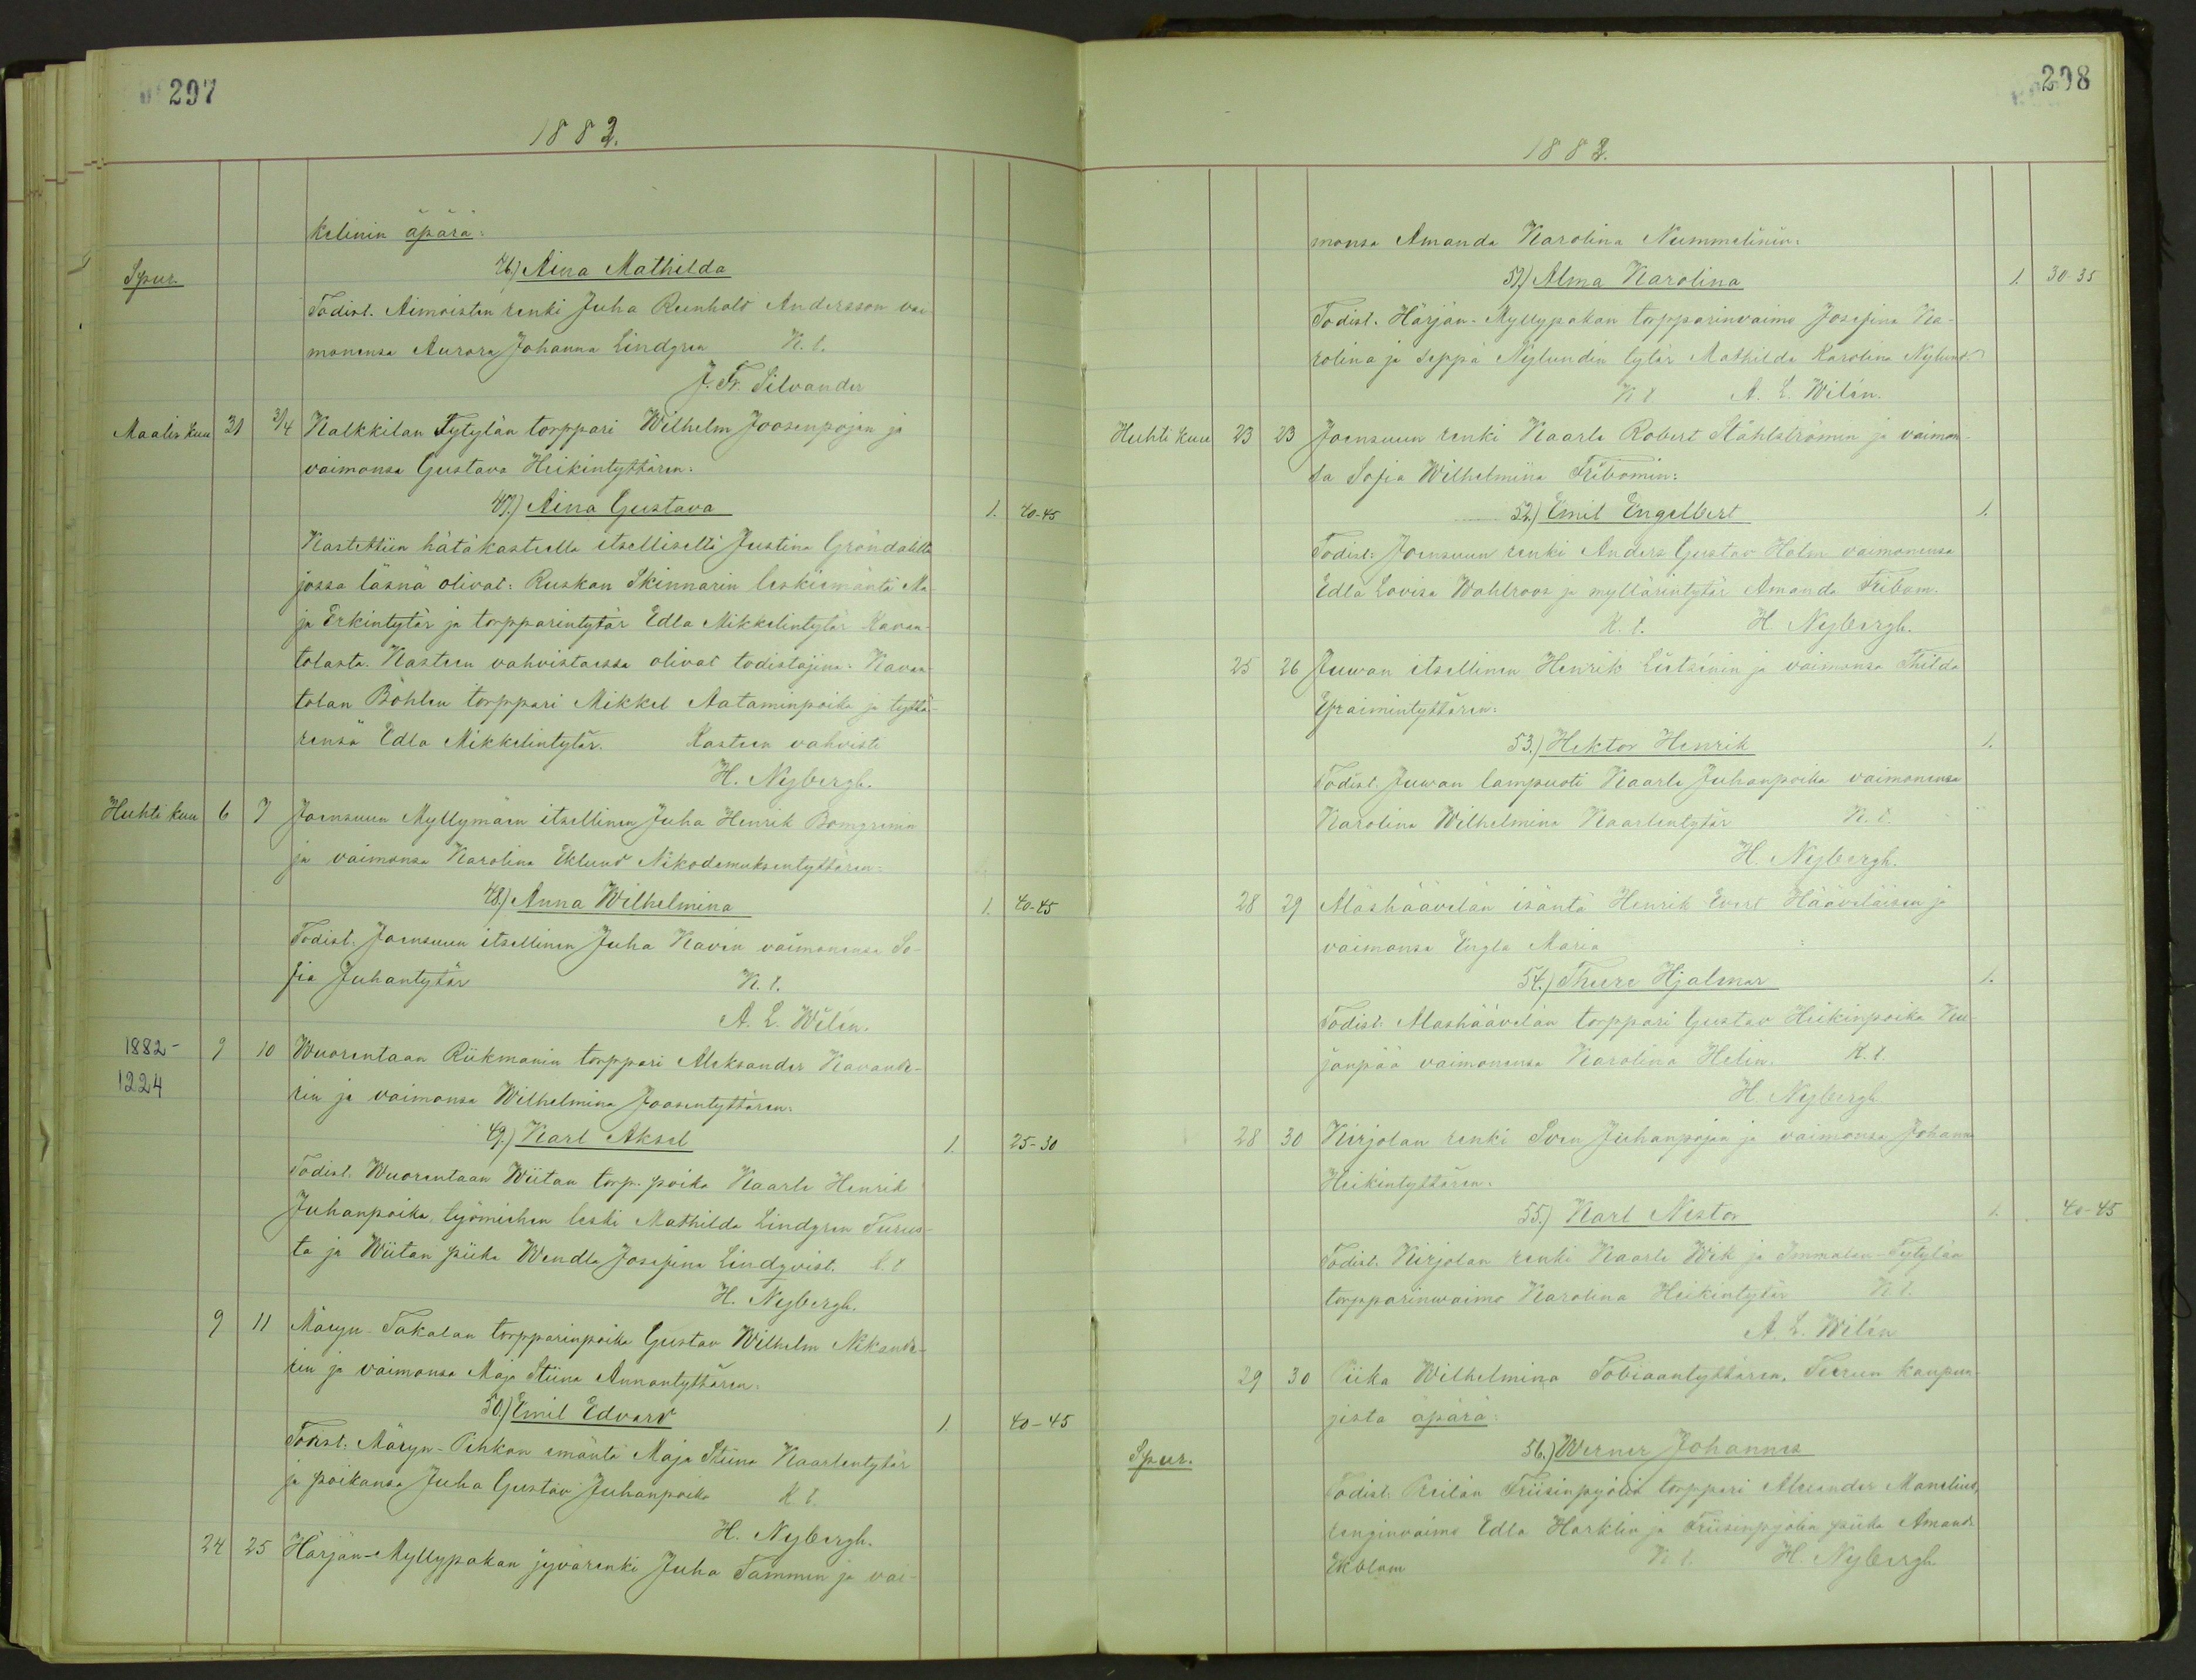 297
1882.
kelinin äpärä:
Spur.
46.) Aina Mathilda
Todist. Aimoisten renki Juha Reinhold Andersson vai-
monensa Aurora Johanna Lindgren K. t.
J. Fr. Silvander
Maalis kuu 31 3/4 Kalkkilan Tytylän torppari Wilhelm Joosenpojan ja
vaimonsa Gustava Heikintyttären:
47.) Aina Gustava 1. 40-45
Kastettiin hätäkasteella itselliseltä Justina Gröndahlilta
jossa läsnä olivat: Ruskan Skinnarin leskiemäntä Ma-
ja Erkintytär ja torpparintytär Edla Mikkelintytär Kavan-
tolasta. Kasteen vahvistaessa olivat todistajina: Kavan-
tolan Böhlen torppari Mikkel Aataminpoika ja tyttä-
rensä Edla Mikkelintytär. Kasteen vahvisti
H. Nybergh.
Huhti kuu 6 7 Joensuun Myllymäen itsellinen Juha Henrik Bomgrenin
ja vaimonsa Karolina Eklund Nikodemuksentyttären:
48.) Anna Wilhelmina 1. 40-45
Todist: Joensuun itsellinen Juha Kavén vaimonensa So-
fia Juhantytär K. t.
A. L. Wilén.
1882- 9 10 Wuorentaan Riikmanin torppari Aleksander Kavande-
1224
rin ja vaimonsa Wilhelmina Joosentyttären:
49.) Karl Aksel 1. 25-30
Todist. Wuorentaan Wiitan torp. poika Kaarle Henrik
Juhanpoika, työmiehen leski Mathilda Lindgren Turus-
ta ja Wiitan piika Wendla Josefina Lindqvist. K. t.
H. Nybergh.
9 11 Märyn-Takalan torpparinpoika Gustav Wilhelm Nikande-
rin ja vaimonsa Maja Stiina Annantyttären:
50.) Emil Edvard 1. 40-45
Todist: Märyn-Pinkan emäntä Maja Stiina Kaarlentytär
ja poikansa Juha Gustav Juhanpoika K. t.
H. Nybergh.
24 25 Härjän-Myllypakan jyvärenki Juha Tammen ja vai-
298
1882.
monsa Amanda Karolina Nummelinin:
51.) Alma Karolina 1. 30-35
Todist. Härjän-Myllypakan torpparinvaimo Josefina Ka-
rolina ja seppä Nylundin tytär Mathilda Karolina Nylund
K. t. A. L. Wilén.
Huhti kuu 23 23 Joensuun renki Kaarle Robert Ståhlströmin ja vaimon-
sa Sofia Wilhelmiina Fribomin:
52.) Emil Engelbert 1.
Todist: Joensuun renki Anders Gustav Holm vaimonensa
Edla Lovisa Wahlroos ja myllärintytär Amanda Fribom.
K. t. H. Nybergh.
25 26 Juwan itsellinen Henrik Liitsénin ja vaimonsa Thilda
Efraimintyttären:
53.) Hektor Henrik 1.
Todist. Juwan lampuoti Kaarle Juhanpoika vaimonensa
Karolina Wilhelmina Kaarlentytär K. t.
H. Nybergh.
28 29 Aläshäävelän isäntä Henrik Evert Hääveläisen ja
vaimonsa Engla Maria :
54.) Thure Hjalmar 1.
Todist: Alashäävelän torppari Gustav Heikinpoika Ku-
janpää vaimonensa Karolina Helin. K. t.
H. Nybergh
28 30 Kirjolan renki Sven Juhanpojan ja vaimonsa Johanna
Heikintyttären:
55.) Karl Nestor 1. 40-45
Todist. Kirjolan renki Kaarle Wik ja Immalan-Tytylän
torpparinwaimo Karolina Heikintytär K. t.
A. L. Wilén
29 30 Piika Wilhelmina Tobiaantyttären, Turun kaupun-
gista äpärä:
Spur.
56.) Werner Johannes
Todist. Preilän Friisinpyölin torppari Alexander Manelius,
renginvaimo Edla Harklin ja Friisinpyölin piika Amanda
Ekblom K. t. H. Nybergh